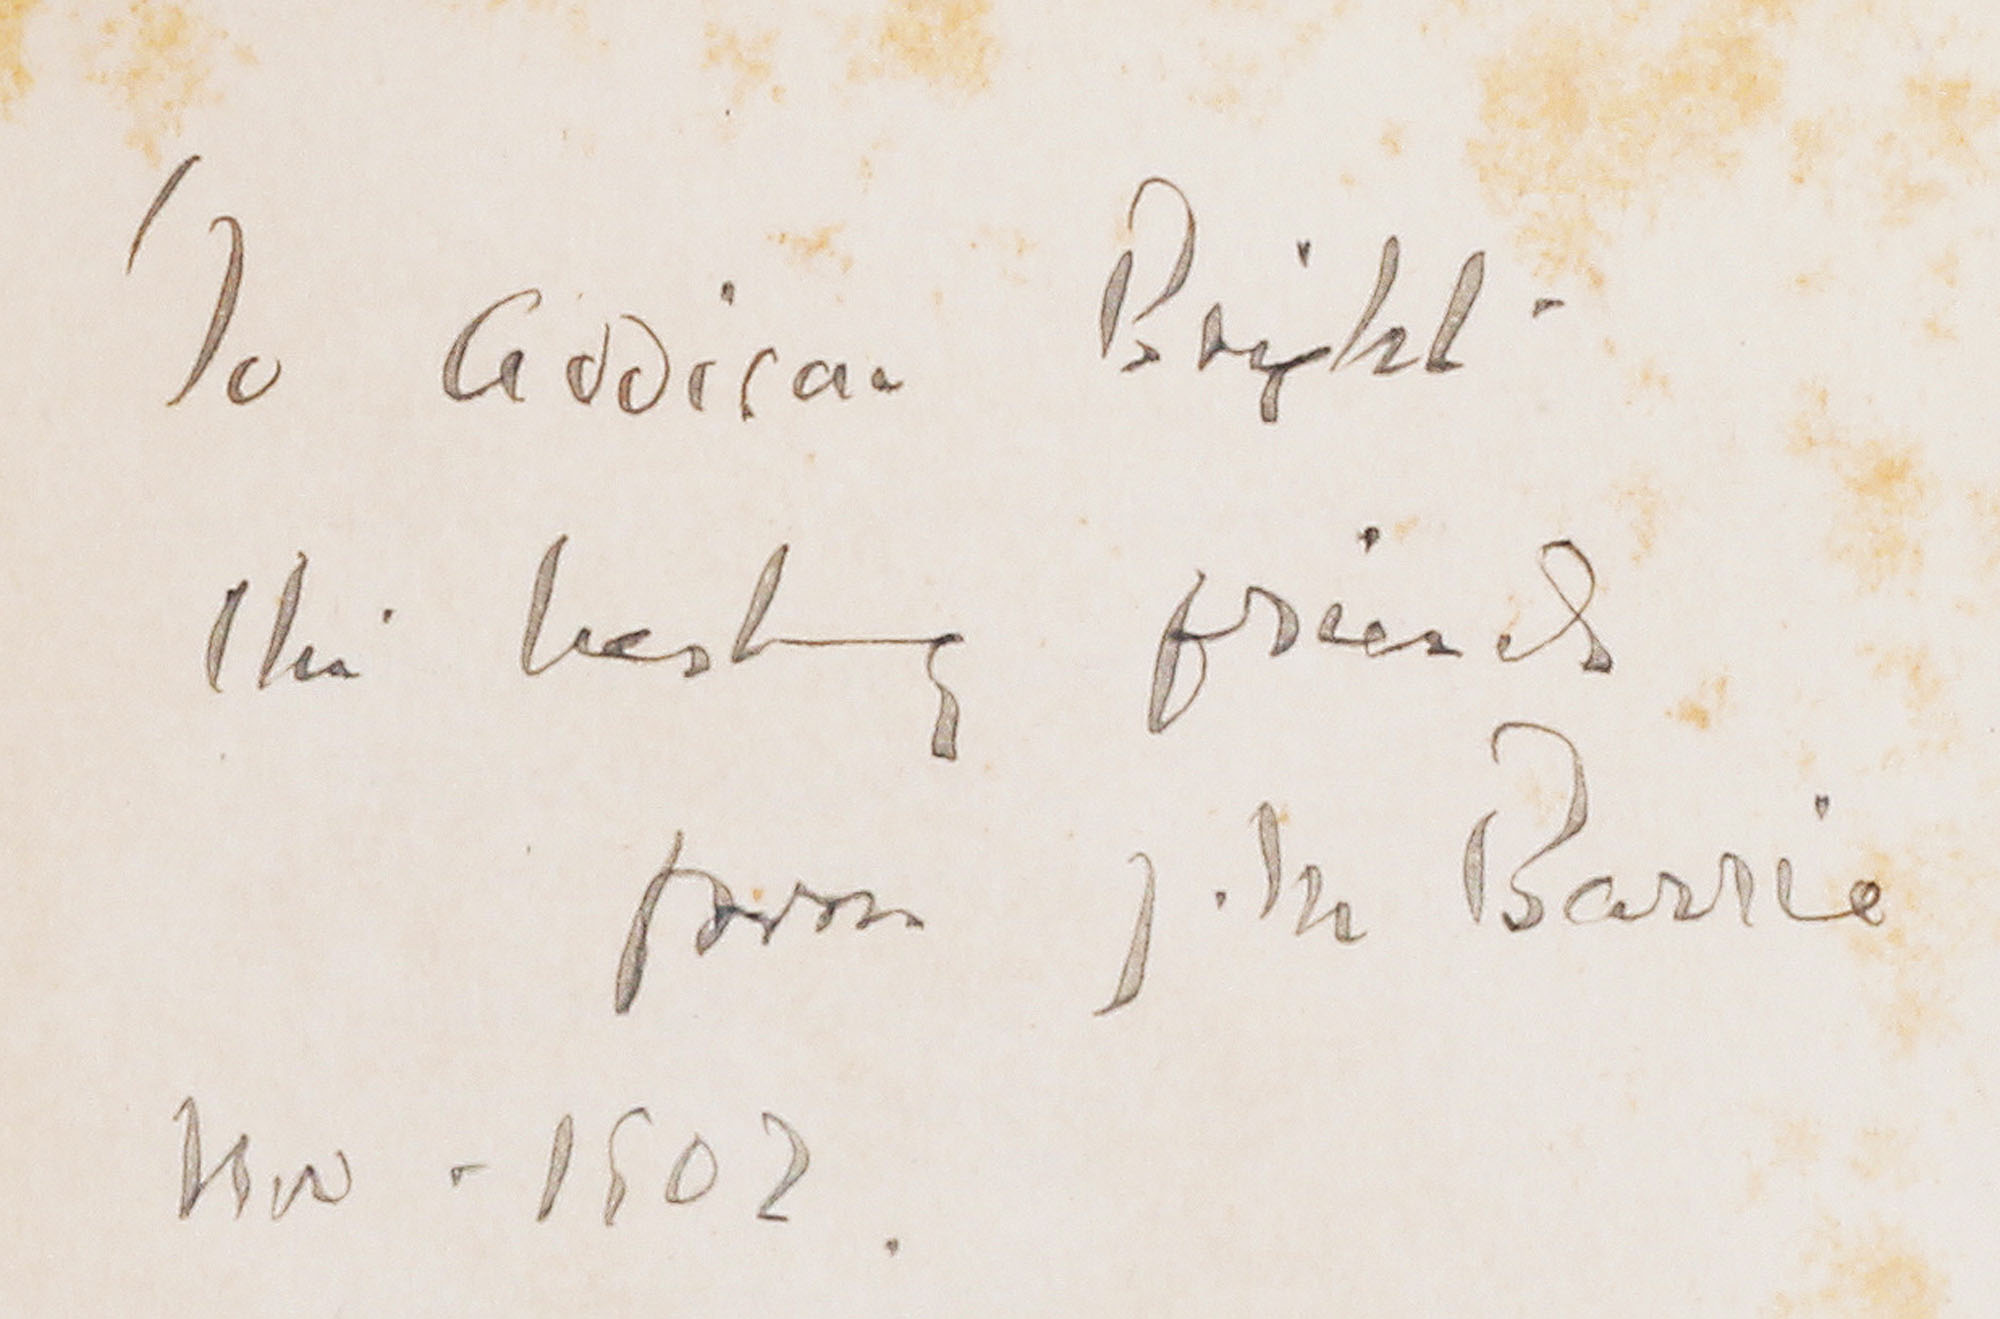 To Addison Bright
friend
from J. M Barrie
Nov - 1902.